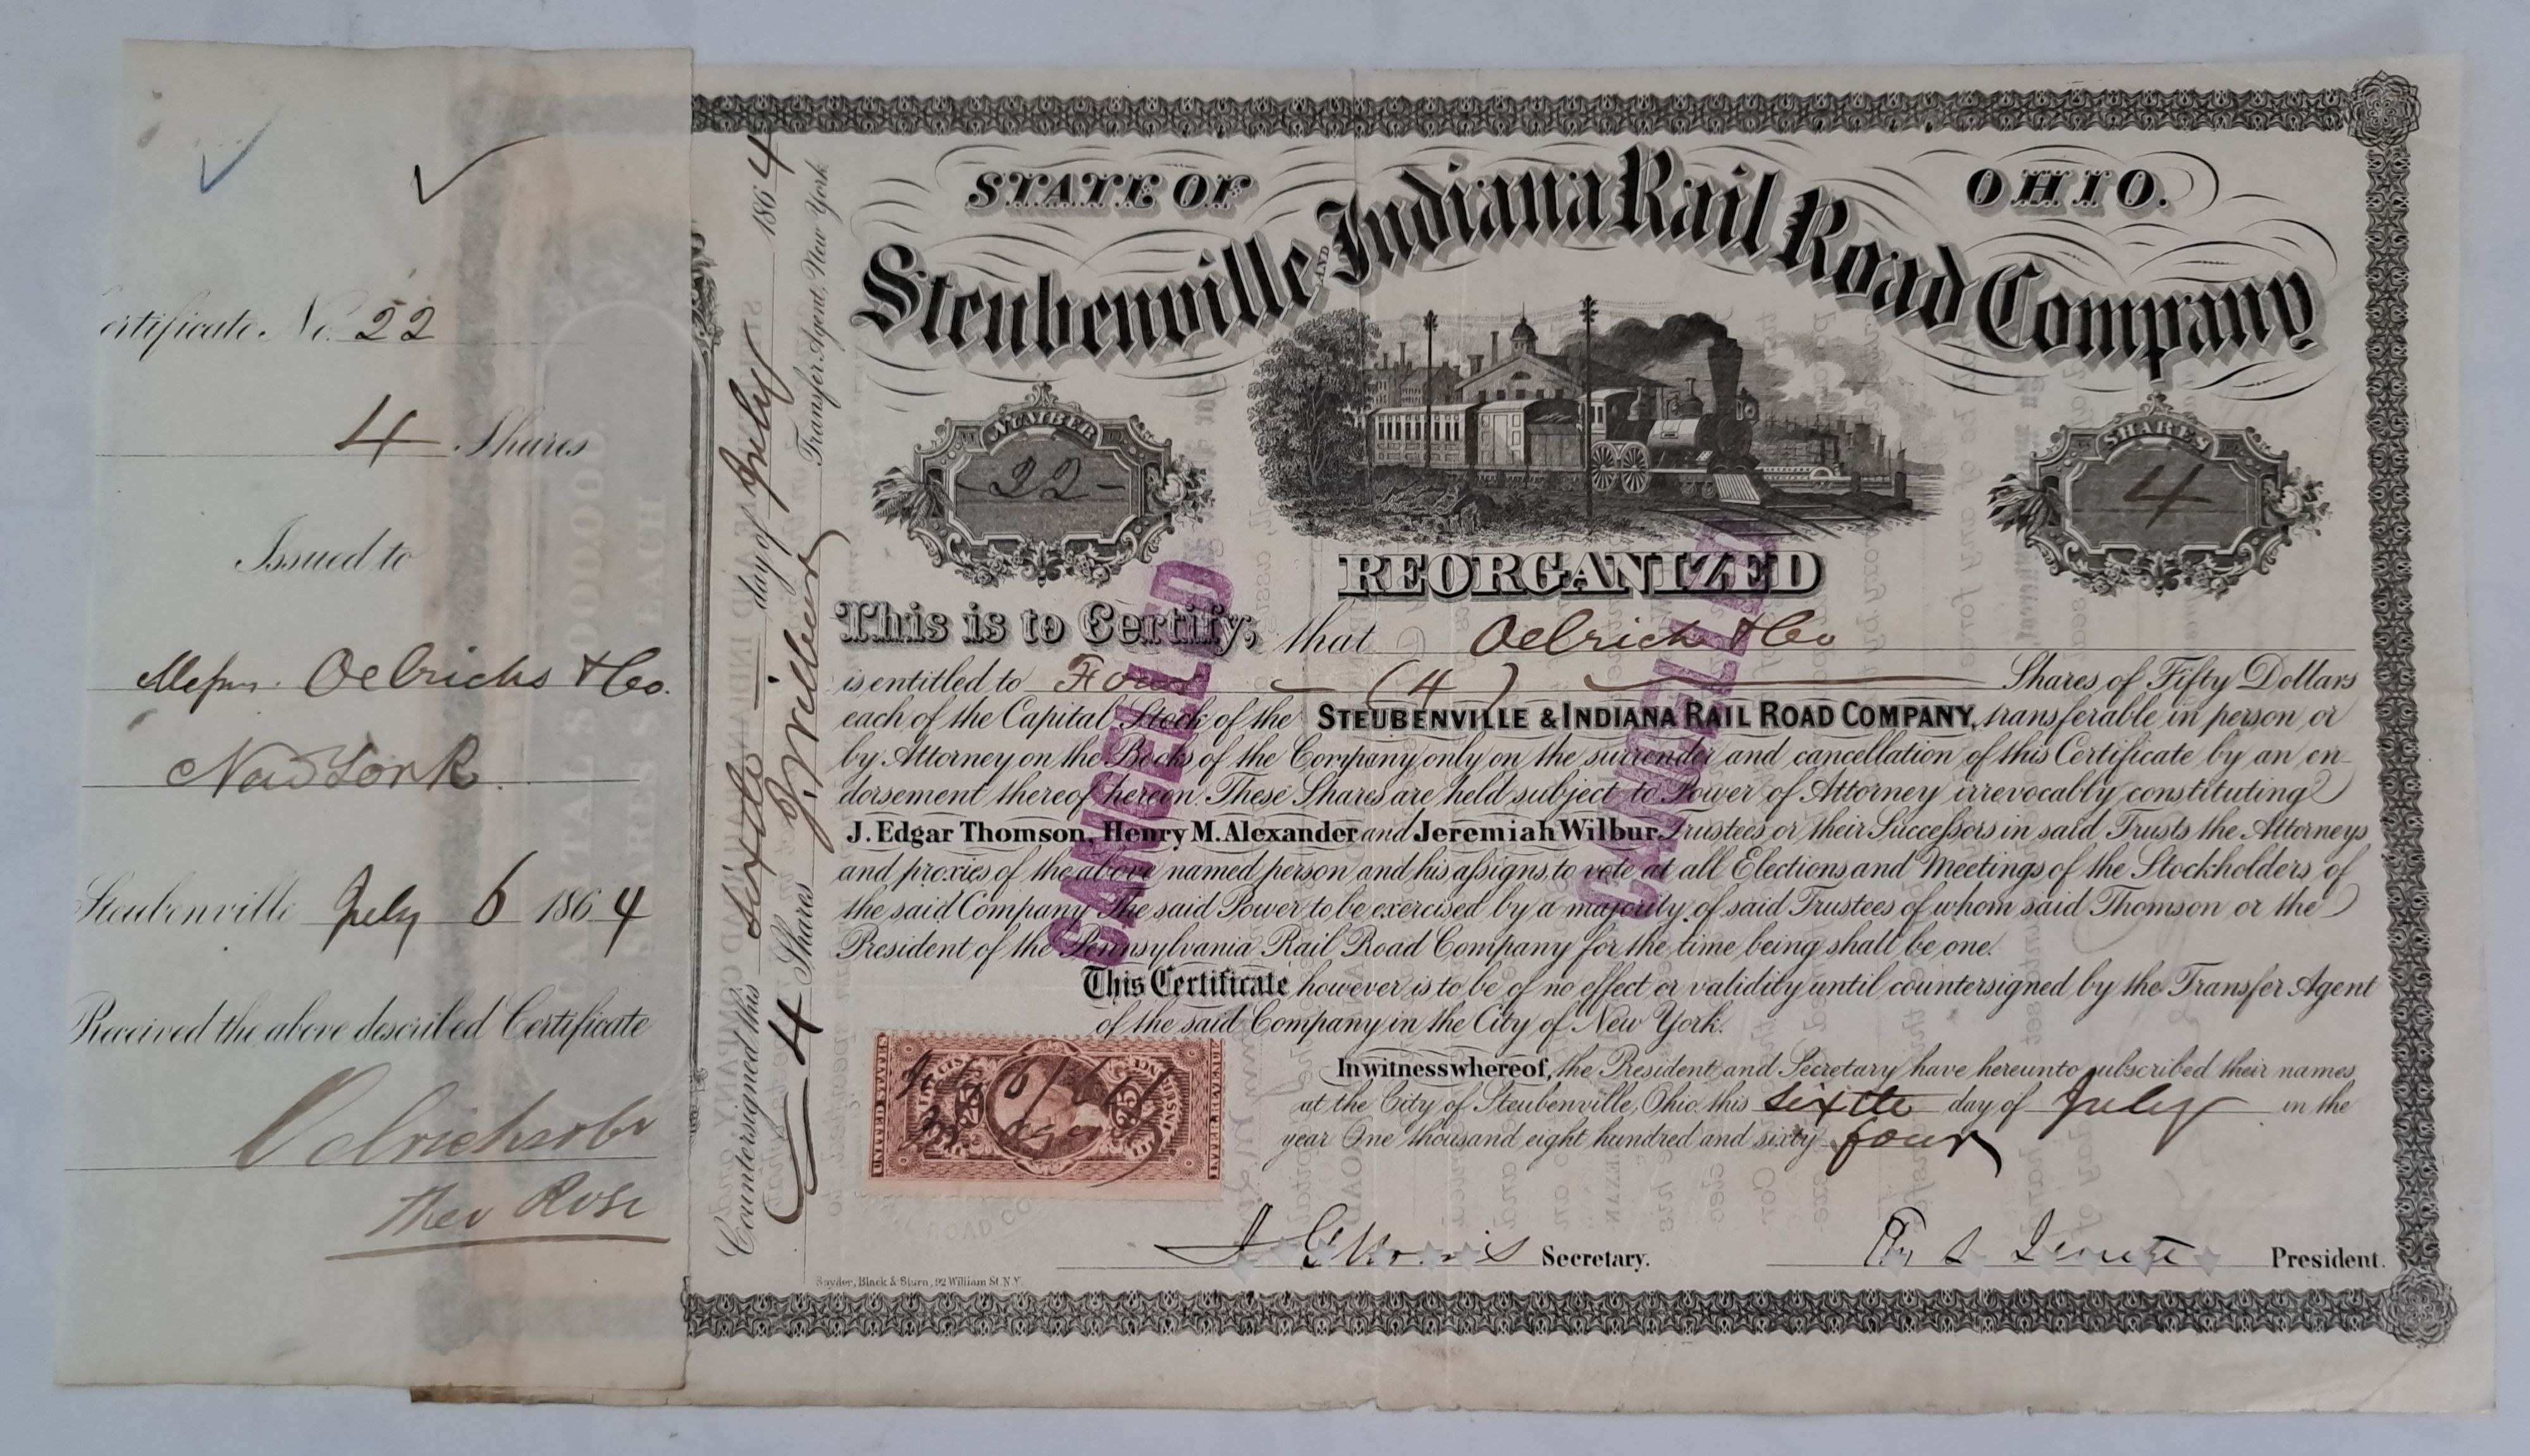 ertificate No. 22
4 Shares
Issued to
Messrs. Oelrichs & Co.
New York.
Steubenville July 6 1864
Received the above described Certificate
Oelrichs & Co
Theo Rose
Countersigned this sixth day of July 1864
4 Shares J. Wilbur Transfer Agent, New York
STATE OF OHIO.
Steubenville AND Indiana Rail Road Company
NUMBER
22
SHARES
4
REORGANIZED
This is to Certify, that Oelrichs & Co
is entitled to Four (4) Shares of Fifty Dollars
each of the Capital Stock of the STEUBENVILLE & INDIANA RAIL ROAD COMPANY, transferable in person or
by Attorney on the Books of the Company only on the surrender and cancellation of this Certificate by an en-
dorsement thereof hereon. These Shares are held subject to Power of Attorney irrevocably constituting
J. Edgar Thomson, Henry M. Alexander and Jeremiah Wilbur Trustees or their Successors in said Trusts the Attorneys
and proxies of the above named person and his assigns, to vote at all Elections and Meetings of the Stockholders of
the said Company The said Power to be exercised by a majority of said Trustees of whom said Thomson or the
President of the Pennsylvania Rail Road Company for the time being shall be one.
This Certificate however is to be of no effect or validity until countersigned by the Transfer Agent
of the said Company in the City of New York.
In witness whereof, the President and Secretary have hereunto subscribed their names
at the City of Steubenville, Ohio this sixth day of July in the
year One thousand eight hundred and sixty four
Secretary.
President.
CANCELLED
CANCELLED
UNITED STATES
INTER. REVENUE
25
25
July 6/64
ROAD CO
Snyder, Black & Sturn, 92 William St. N.Y.